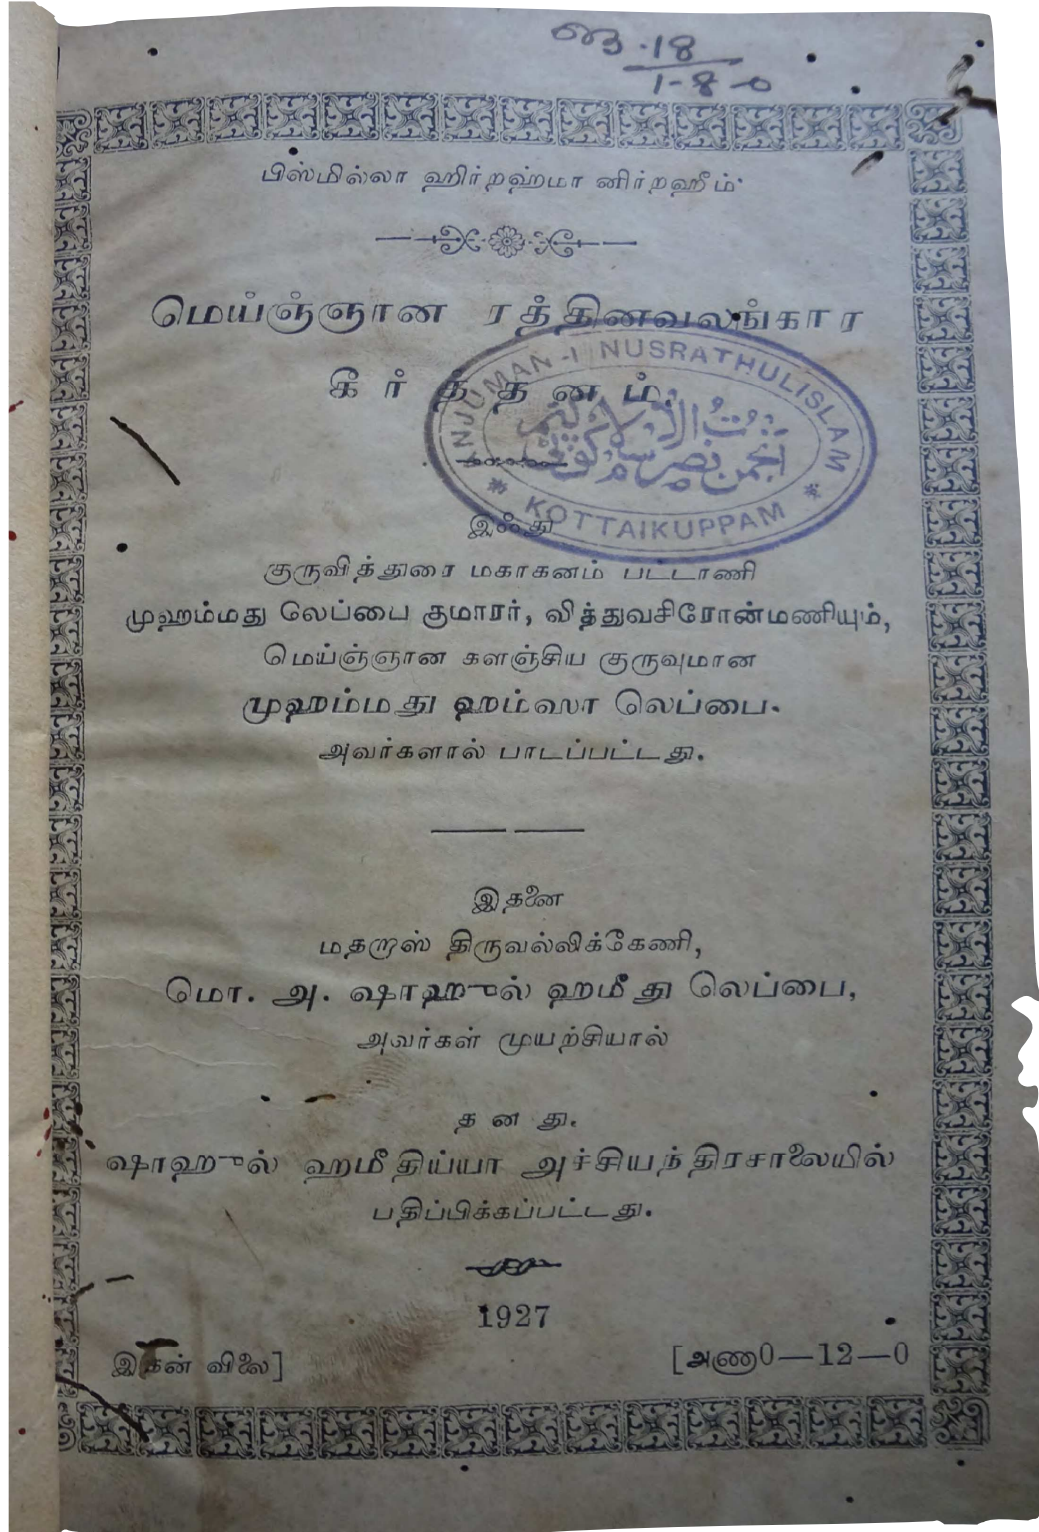 18
1-8-0
பிஸ்மில்லா ஹிர்றஹ்மா னிர்றஹீம்
மெய்ஞ்ஞான ரத்தினவலங்கார
கீர்த்தனம்.
ANJUMAN-I NUSRATHULISLAM
KOTTAIKUPPAM
இஃது
குருவித்துரை மகாகனம் பட்டாணி
முஹம்மது லெப்பை குமாரர், வித்துவசிரோன்மணியும்,
மெய்ஞ்ஞான களஞ்சிய குருவுமான
முஹம்மது ஹம்ஸா லெப்பை.
அவர்களால் பாடப்பட்டது.
இதனை
மதறாஸ் திருவல்லிக்கேணி,
மொ. அ. ஷாஹுல் ஹமீது லெப்பை,
அவர்கள் முயற்சியால்
தனது.
ஷாஹுல் ஹமீதிய்யா அச்சியந்திரசாலையில்
பதிப்பிக்கப்பட்டது.
1927
இதன் விலை] [அணா0—12—0